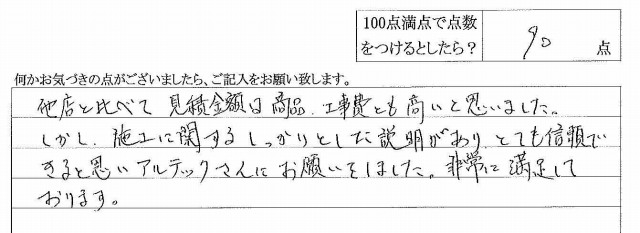 100点満点で点数
をつけるとしたら？
90 点
何かお気づきの点がございましたら、ご記入をお願い致します。
他店と比べて 見積金額は商品、工事費とも高いと思いました。
しかし、施工に関するしっかりとした説明があり、とても信頼で
きると思いアルテックさんにお願いをしました。非常に満足して
おります。